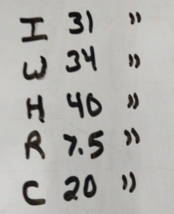 I 31 "
W 34 "
H 40 "
R 7.5 "
C 20 "